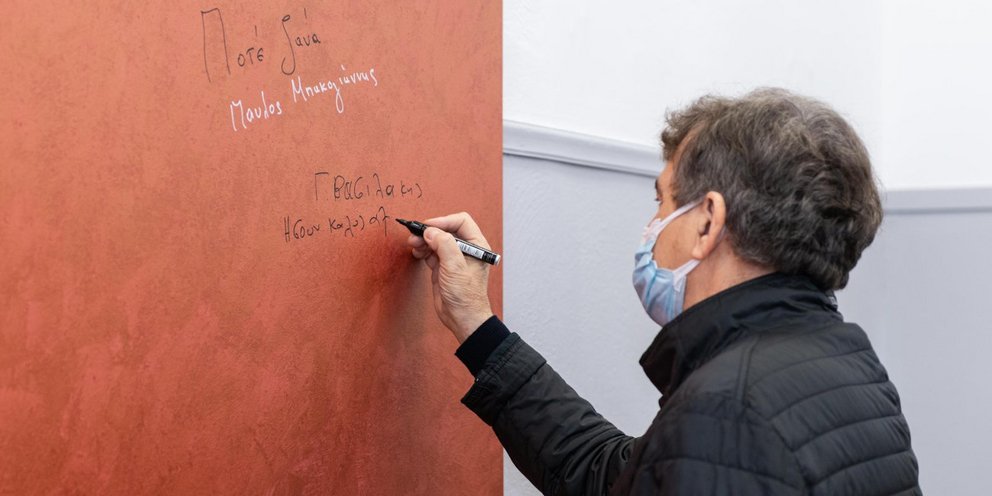 Ποτέ ξανά
Παυλος Μπακογιάννης
Γ. Βασιλακης
Ησουν καλυ